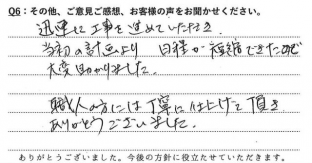 Q6：その他、ご意見ご感想、お客様の声をお聞かせください。
迅速に工事を進めていただき
当初の計画より 日程が短縮できたので
大変助かりました。
職人の方には丁寧に仕上げて頂き
ありがとうございました。
ありがとうございました。今後の方針に役立たせていただきます。